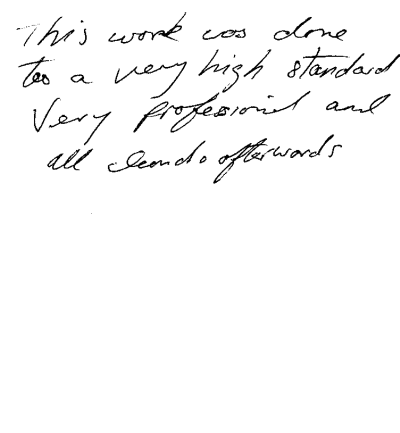 This work was done
too a very high standard
Very professional and
all cleand afterwards